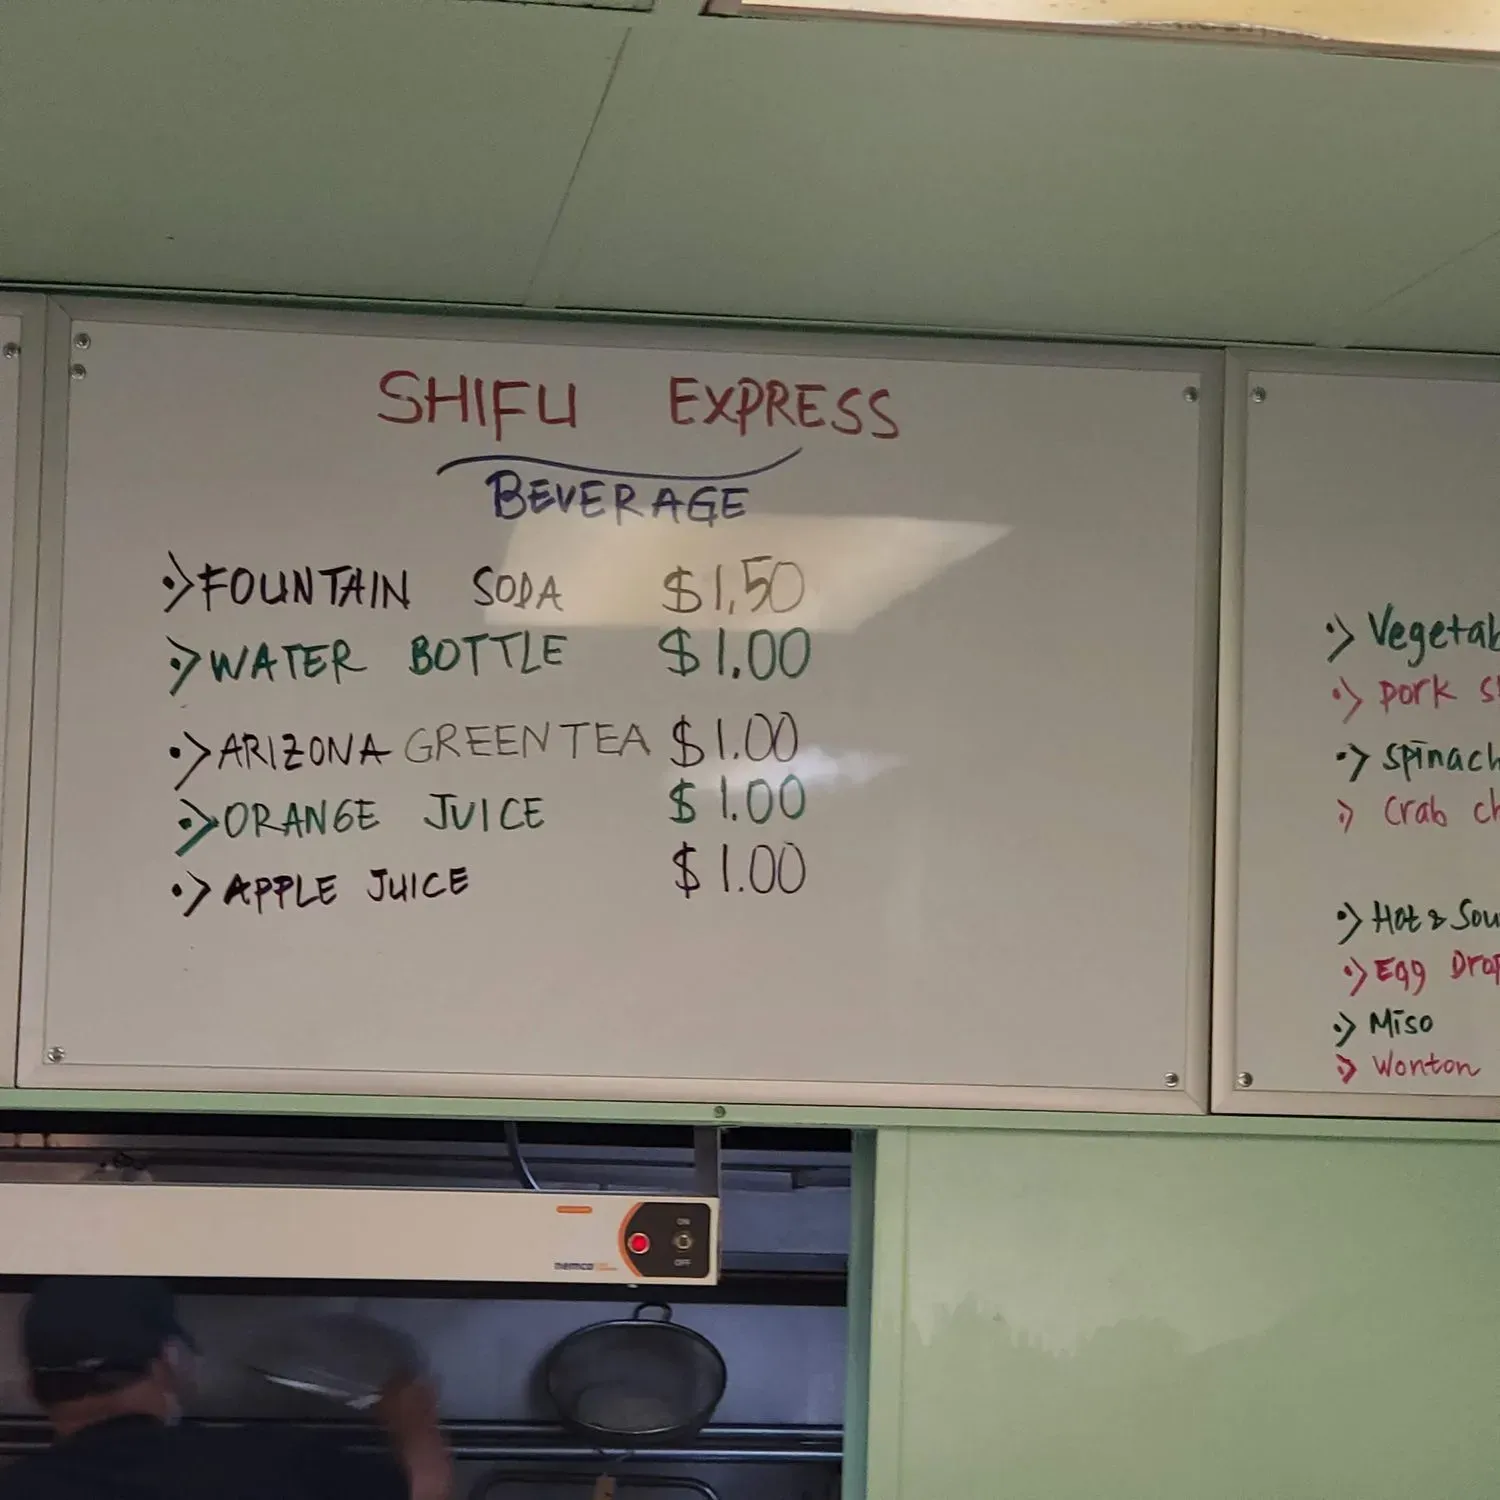 SHIFU EXPRESS
BEVERAGE
•> FOUNTAIN SODA $1.50
•> WATER BOTTLE $1.00
•> ARIZONA GREEN TEA $1.00
•> ORANGE JUICE $1.00
•> APPLE JUICE $1.00
•> Vegetab
•> Pork
•> Spinach
•> Crab
•> Hot & Sou
•> Egg Drop
•> Miso
•> Wonton
nemco
ON
OFF